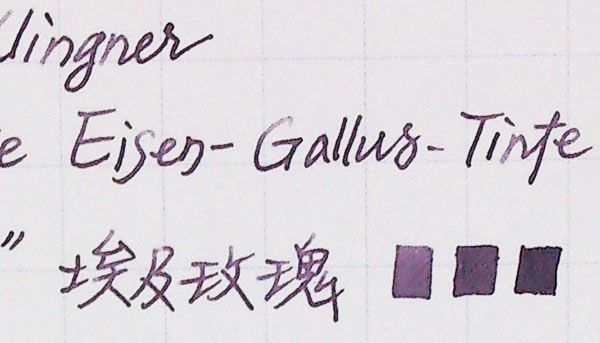 lingner
e Eisen-Gallus-Tinte
" 埃及玫瑰